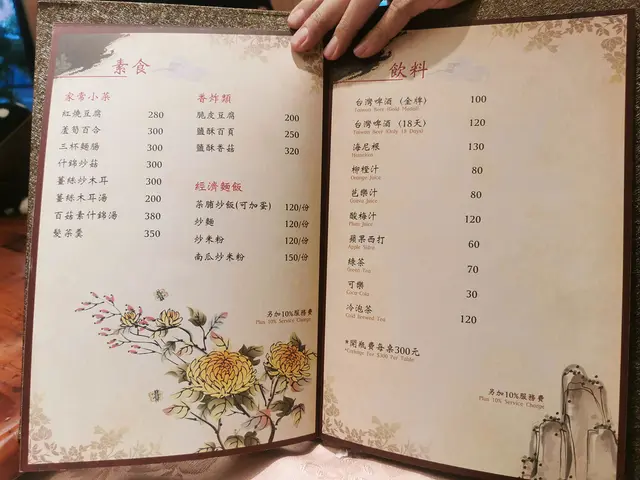 素食
家常小菜
紅燒豆腐 280
蘆筍百合 300
三杯麵腸 300
什錦炒菇 300
薑絲炒木耳 300
薑絲木耳湯 200
百菇素什錦湯 380
髮菜羹 350
香炸類
脆皮豆腐 200
鹽酥百頁 250
鹽酥香菇 320
經濟麵飯
菜脯炒飯(可加蛋) 120/份
炒麵 120/份
炒米粉 120/份
南瓜炒米粉 150/份
另加10%服務費
Plus 10% Service Charge
飲料
台灣啤酒 (金牌) 100
Taiwan Beer (Gold Medal)
台灣啤酒 (18天) 120
Taiwan Beer (Only 18 Days)
海尼根 130
Heineken
柳橙汁 80
Orange Juice
芭樂汁 80
Guava Juice
酸梅汁 120
Plum Juice
蘋果西打 60
Apple Sidra
綠茶 70
Green Tea
可樂 30
Coca Cola
冷泡茶 120
Cold Brewed Tea
*開瓶費每桌300元
*Corkage Fee $300 Per Table
另加10%服務費
Plus 10% Service Charge